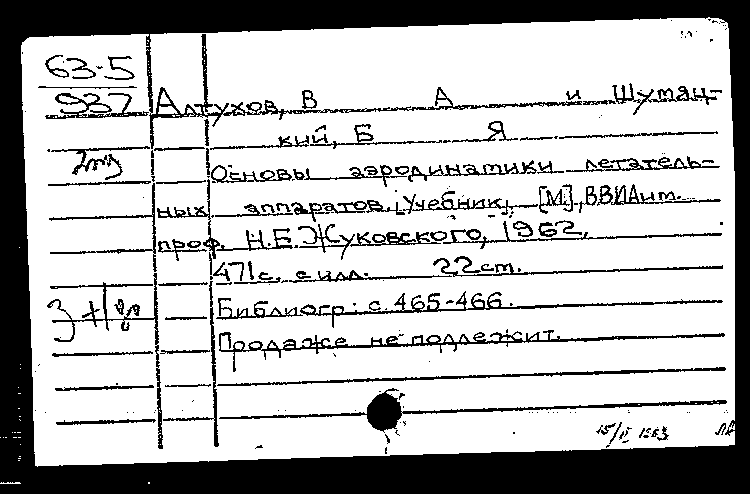 63-5
937 Алтухов, В А и Шумяц-
кий, Б Я
Основы аэродинамики летатель-
ных аппаратов. [Учебник]. [М.], ВВИА им.
проф. Н.Е. Жуковского, 1962.
471 с. с илл. 22 cm.
Библиогр: с. 465-466.
Продаже не подлежит.
15/II 1963